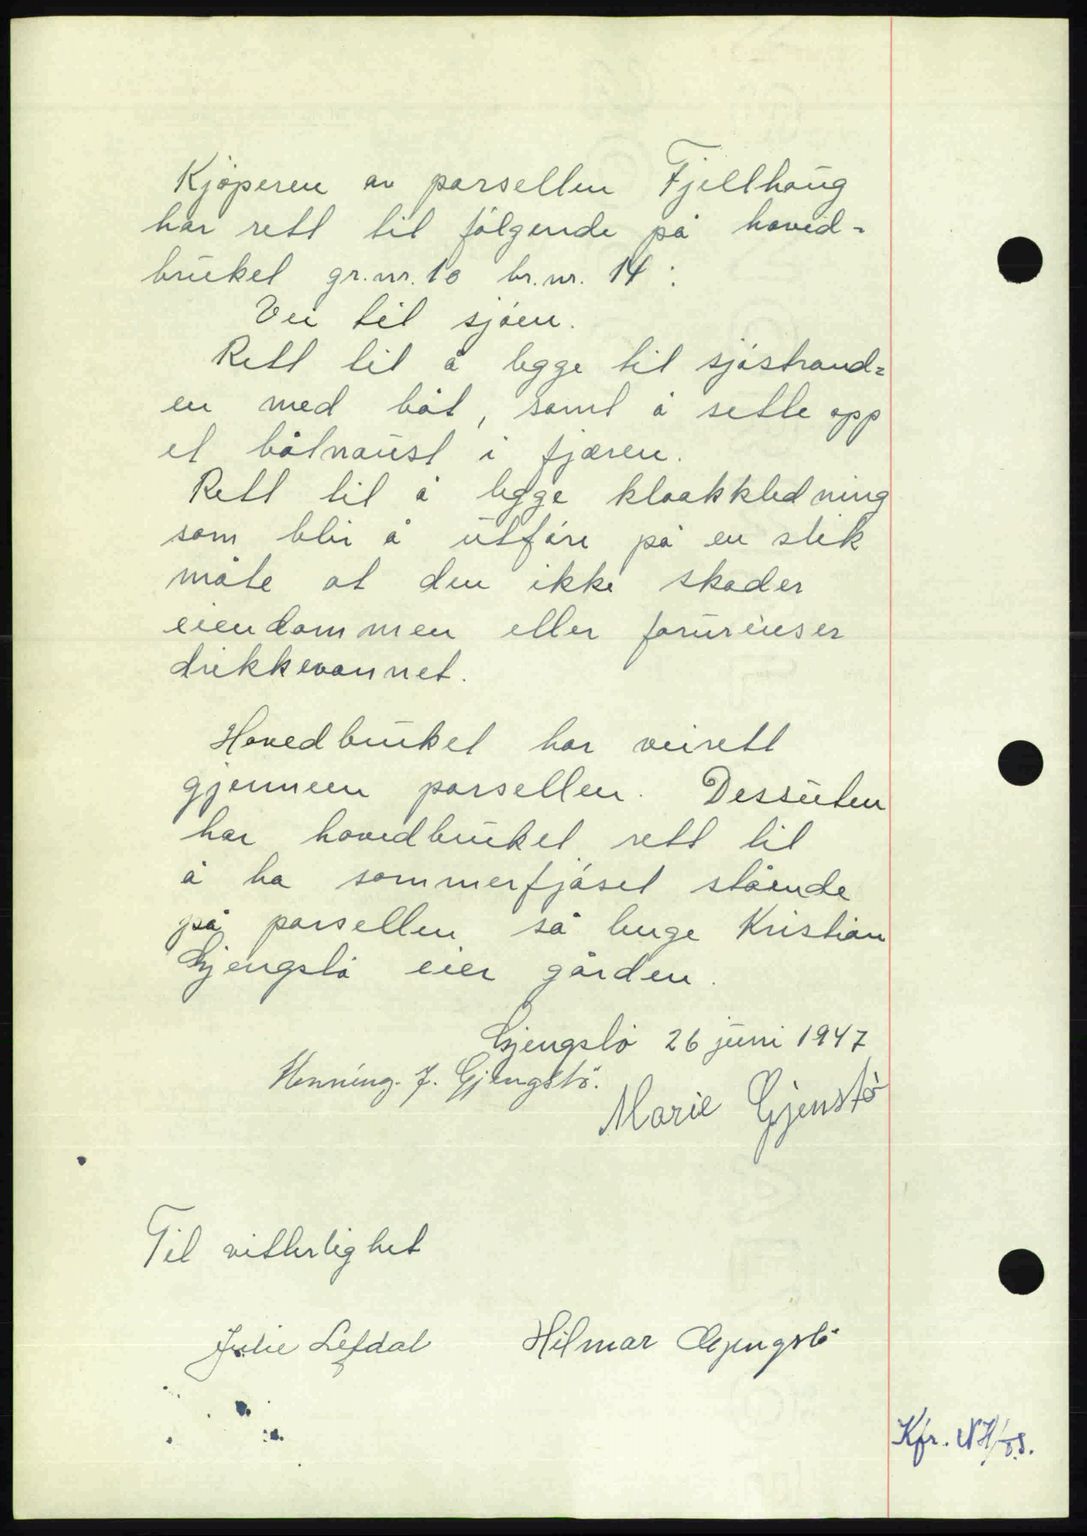 Kjöperen av parsellen Fjellhaug
har rett til fölgende på hoved-
bruket gr.nr. 10 br.nr. 14 :
Vei til sjöen.
Rett til å legge til sjöstrand-
en med båt, samt å sette opp
et båtnaust i fjæren.
Rett til å legge kloakkledning
som blir å utföre på en slik
måte at den ikke skader
eiendommen eller forurenser
drikkevannet.
Hovedbruket har veirett
gjennem parsellen. Dessuten
har hovedbruket rett til
å ha sommerfjöset stående
på parsellen så lenge Kristian
Gjengstö eier gården.
Gjengstö 26 juni 1947
Henning. J. Gjengstö.
Marie Gjenstö
Til vitterlighet
Julie Lefdal Hilmar Gjengstö
Kfr. NH/